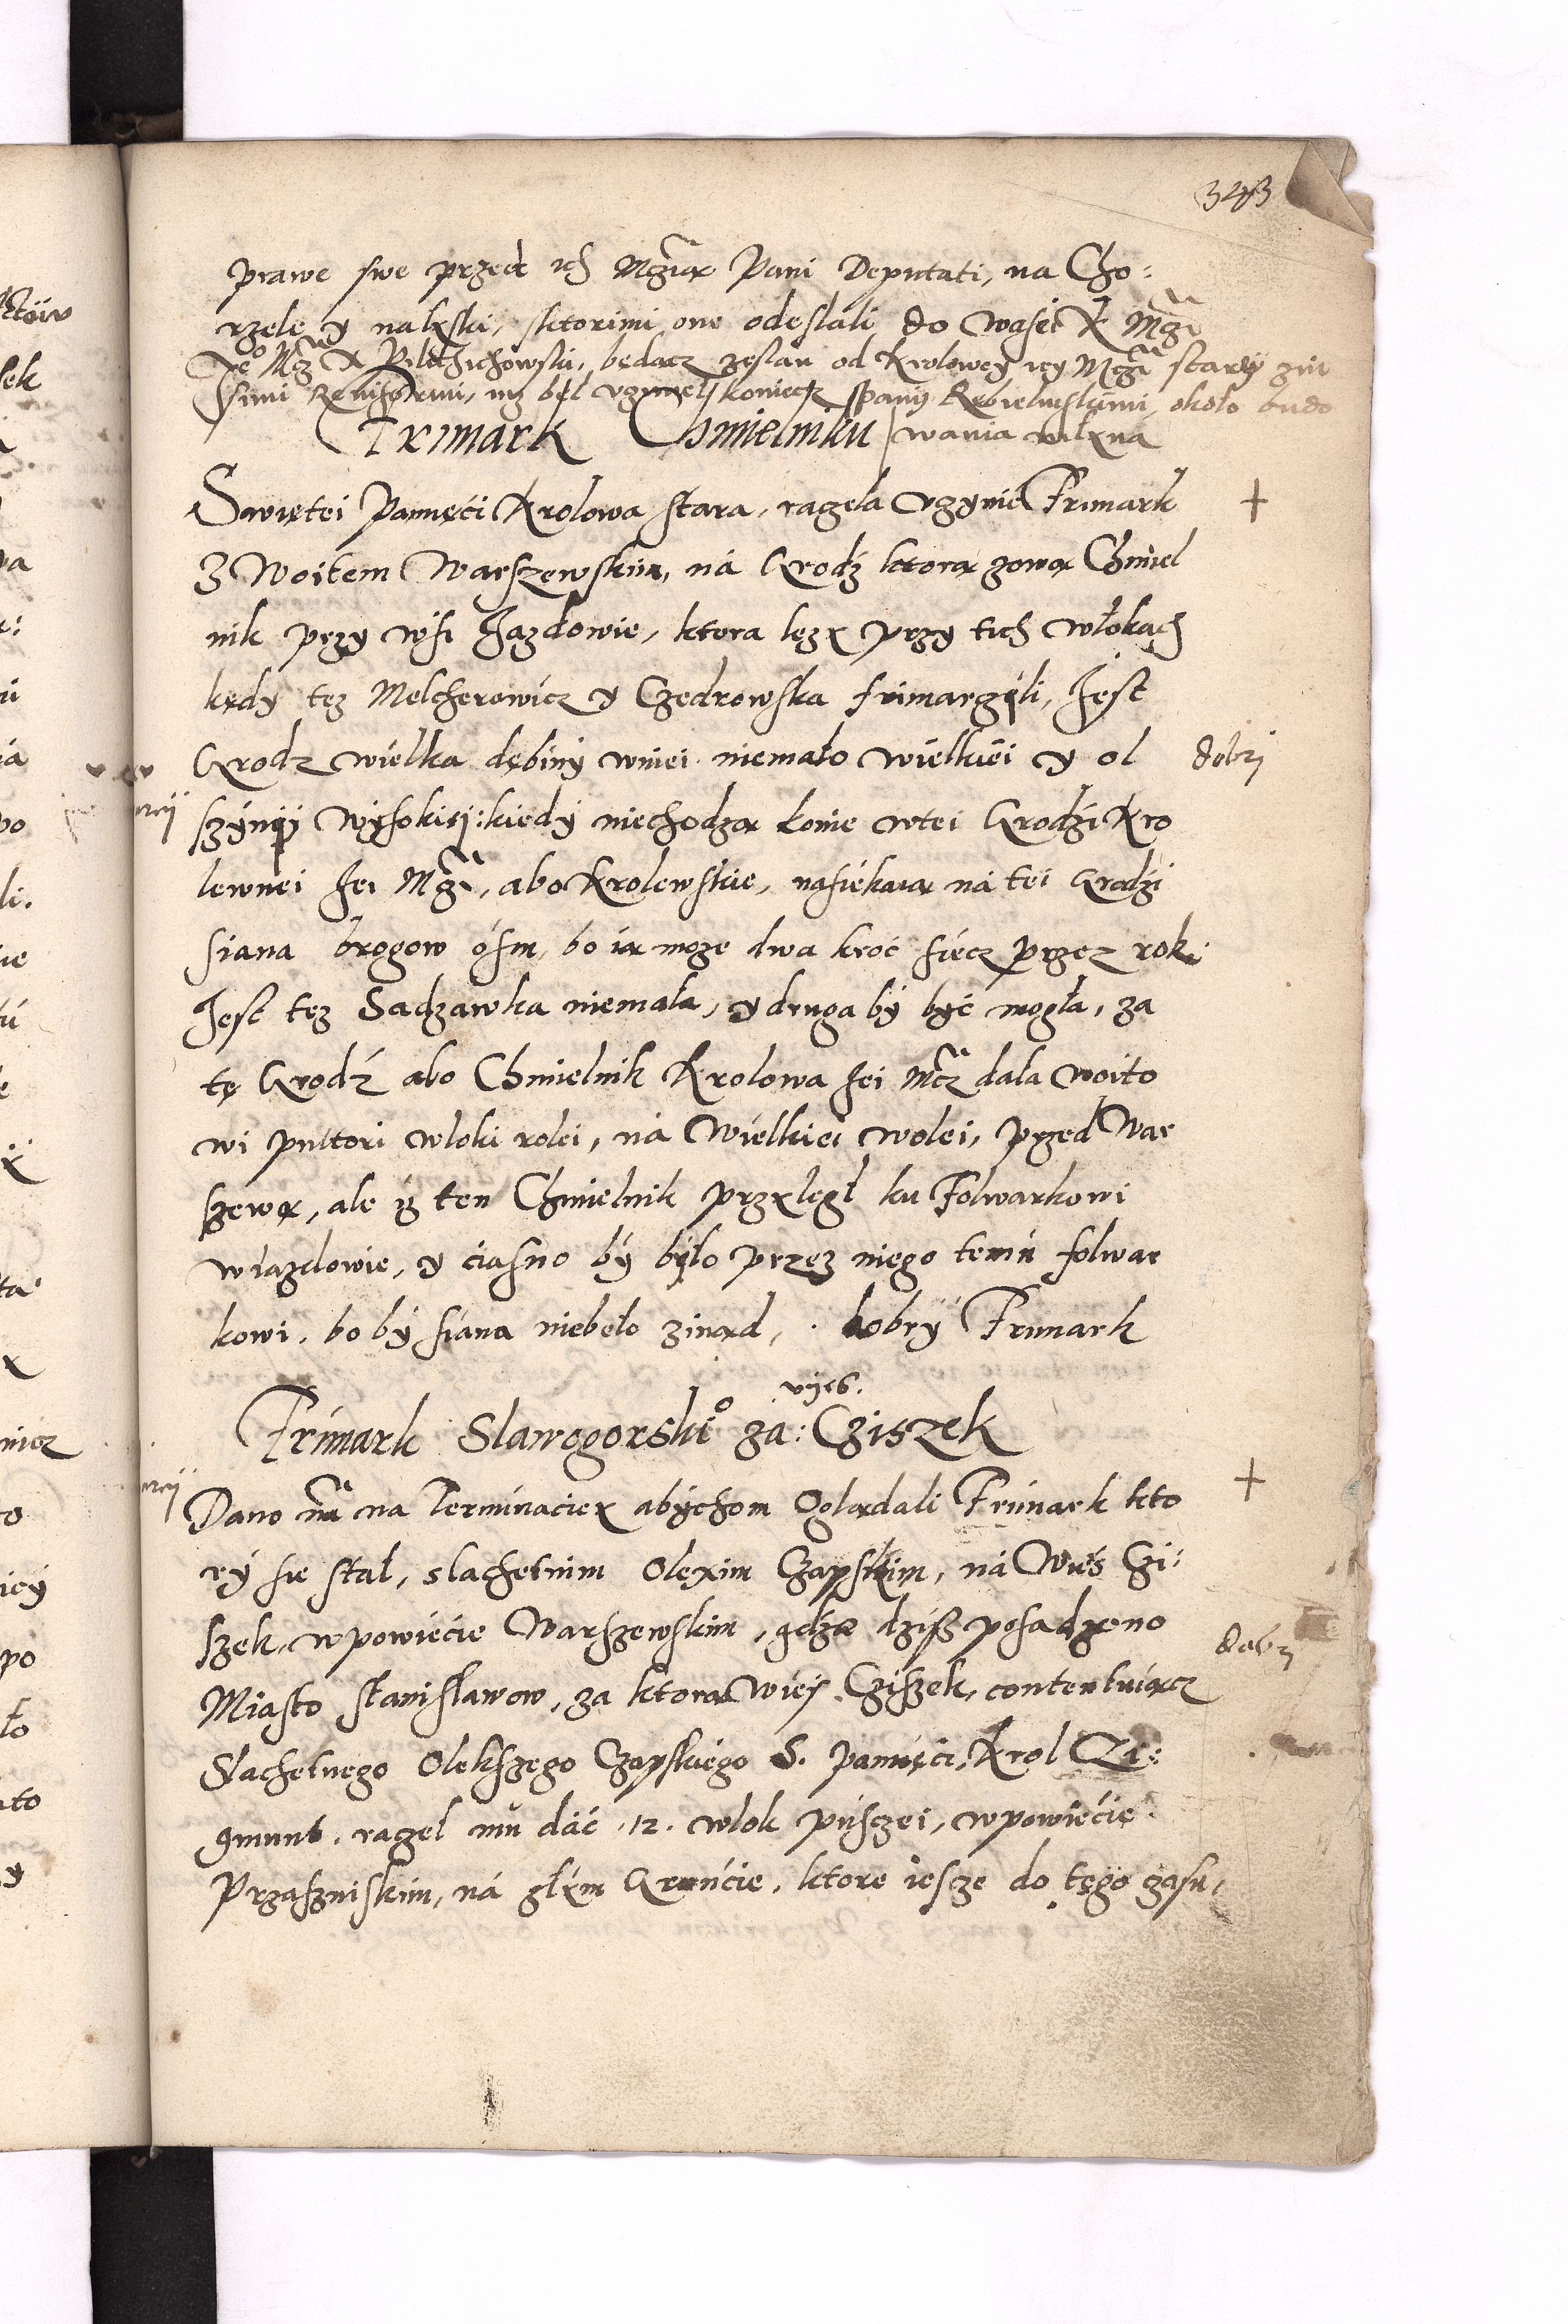 343
prawe swe przed ich Mczia Pani Deputati, na Cho:
rzele y nalęski, sktorimi one odeslali do wasei K Mczi
Je° Mcz X Bilchichowski, bedacz zeslan od Krolowey iey Mczi starey zin
szimi Revisormi, iuz bÿl vczinel koniecz spany Rębielinskimi, około budo
wania młyna
Frimark Chmielniku
Swiętei Pamięći Krolowa stara, raczeła vczynić Frimark
Z Woitem Warszewskim, ná Grodź ktora zowa Chmiel
nik przy wśi Jazdowie, ktora leży przy tich włokach
kędy tez Melcherowicz y Czedrowska frimarczÿli, Jest
Grodz wielka dębinÿ wniei niemało wielkiei y ol
szÿnÿ wÿsokiei: kiedÿ niechodza konie wtei Grodźi Kro
lewnei Jei Mczi, abo Krolewskie, nasiekaia ná tei Grodźi
siana brogow ósm, bo ia moze dwa kroć siecz przez rok.
Jest tez Sadzawka niemała, y druga bÿ bÿć mogła, za
tę Grodź abo Chmielnik Krolowa Jei Mcz dała woito
wi pułtori włoki rolei, ná Wielkiei wolei, przed War
szewa, ale iz ten Chmielnik przÿległ ku Folwarkowi
wiazdowie, y ciasno bÿ bÿło przez niego temu folwar
kowi, bo bÿ siana niebeło zinad, dobrÿ Frimark
dobri
Frimark Slawogorski° za: Cziszek
Dano na Terminaciey abÿchom Oglądali Frimark kto
rÿ sie stał, slachetnim Olexim Czapskim, ná Wieś Czi:
szek, w powiećie Warszewskim, gdzie dzisz posadzono
Miasto stanisławow, za ktora Wieś Cziszek, contentuiącz
Slachetnego Olekszego Czapskiego S. pamięci, Krol Zi:
gmunt, raczel mu dáć .12. wlok pusczei, w powiećie
Przaszniskim, ná złÿm Grunćie, ktore iescze do tego czasu,
dobri